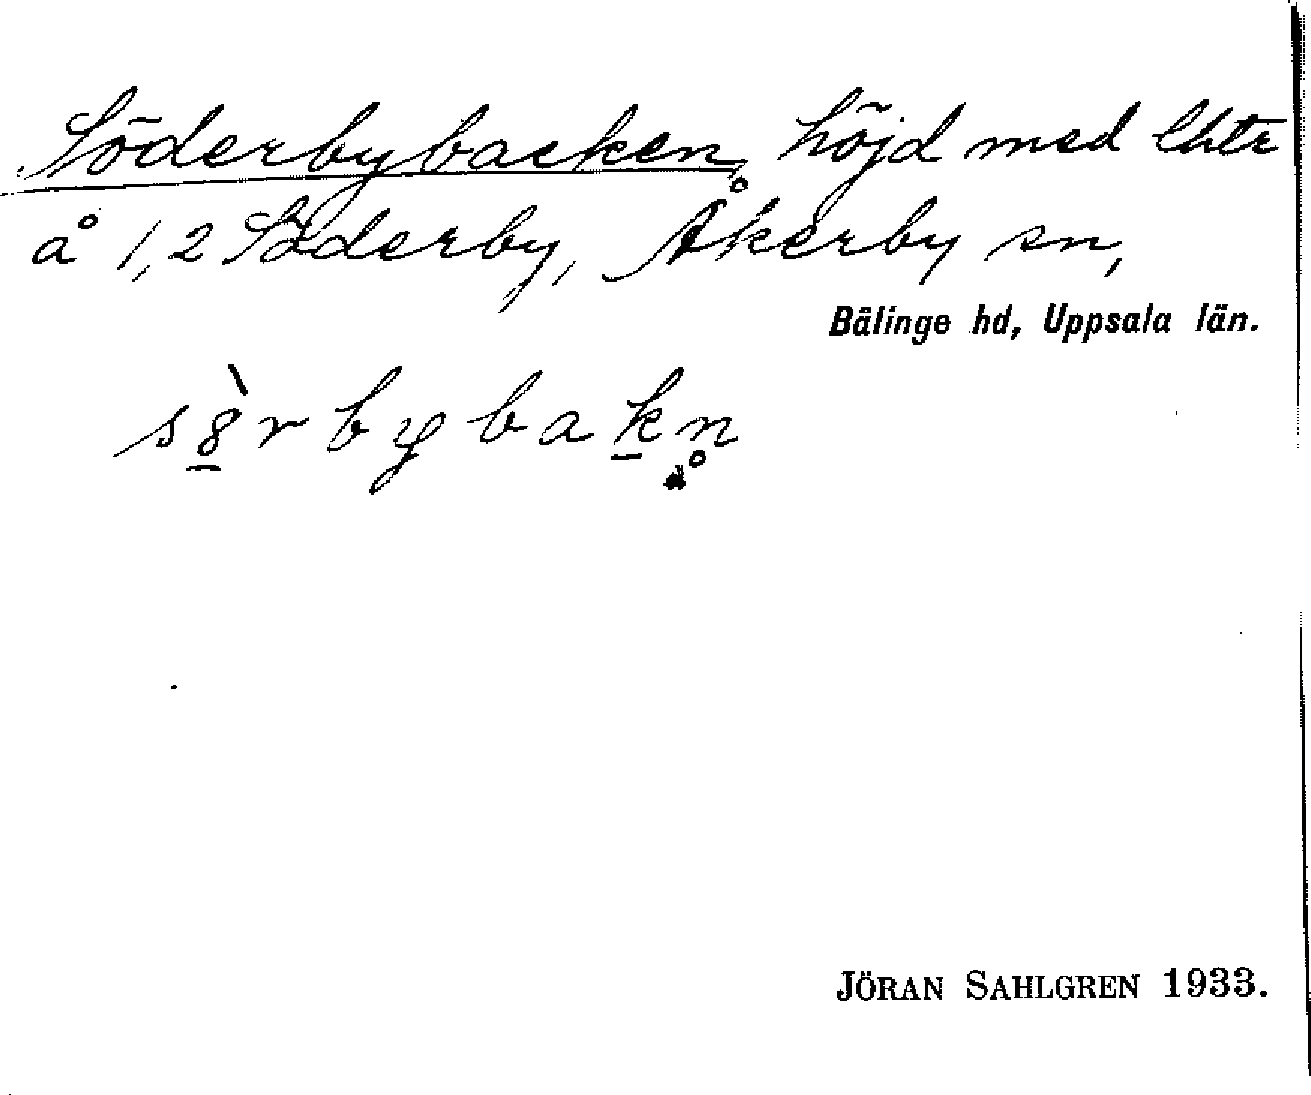 Söderbybacken, höjd med lhtr
å 1,2 Söderby, Åkerby sn,
Bälinge hd, Uppsala län.
s8̀rbybakn̥
JÖRAN SAHLGREN 1933.